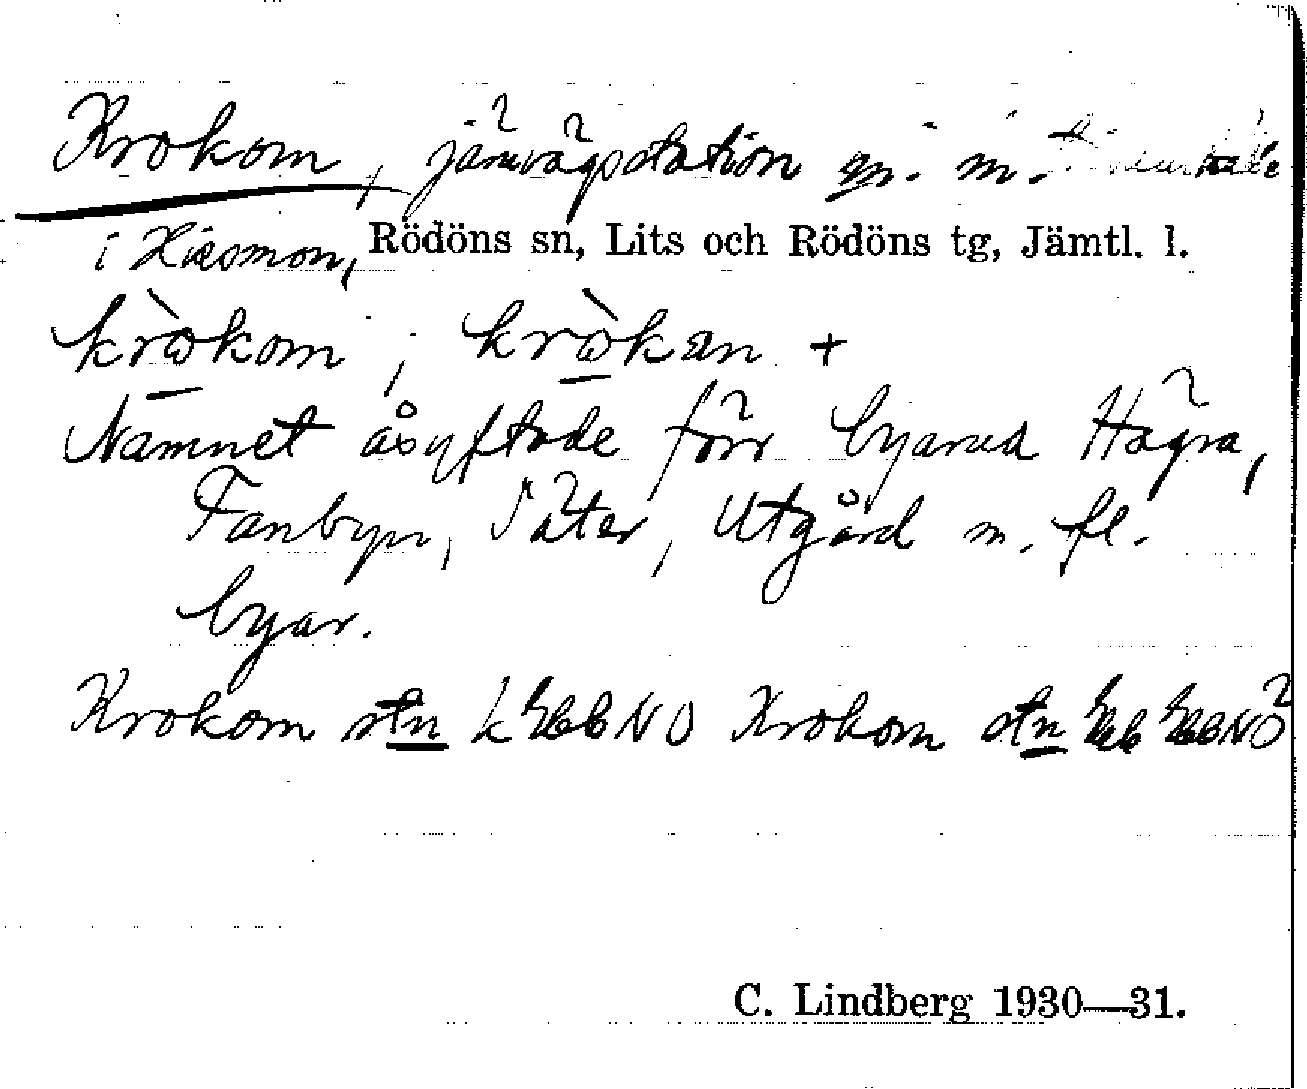 Krokom, järnvägsstation m. m.
i Hissmon, Rödöns sn, Lits och Rödöns tg, Jämtl. l.
kròkom ; kròkan +
Namnet åsyftade förr byarna Hägra,
Fanbyn, Säter, Utgård m. fl.
byar.
Krokom stn NO Krokom stn NÖ
C. Lindberg 1930—31.